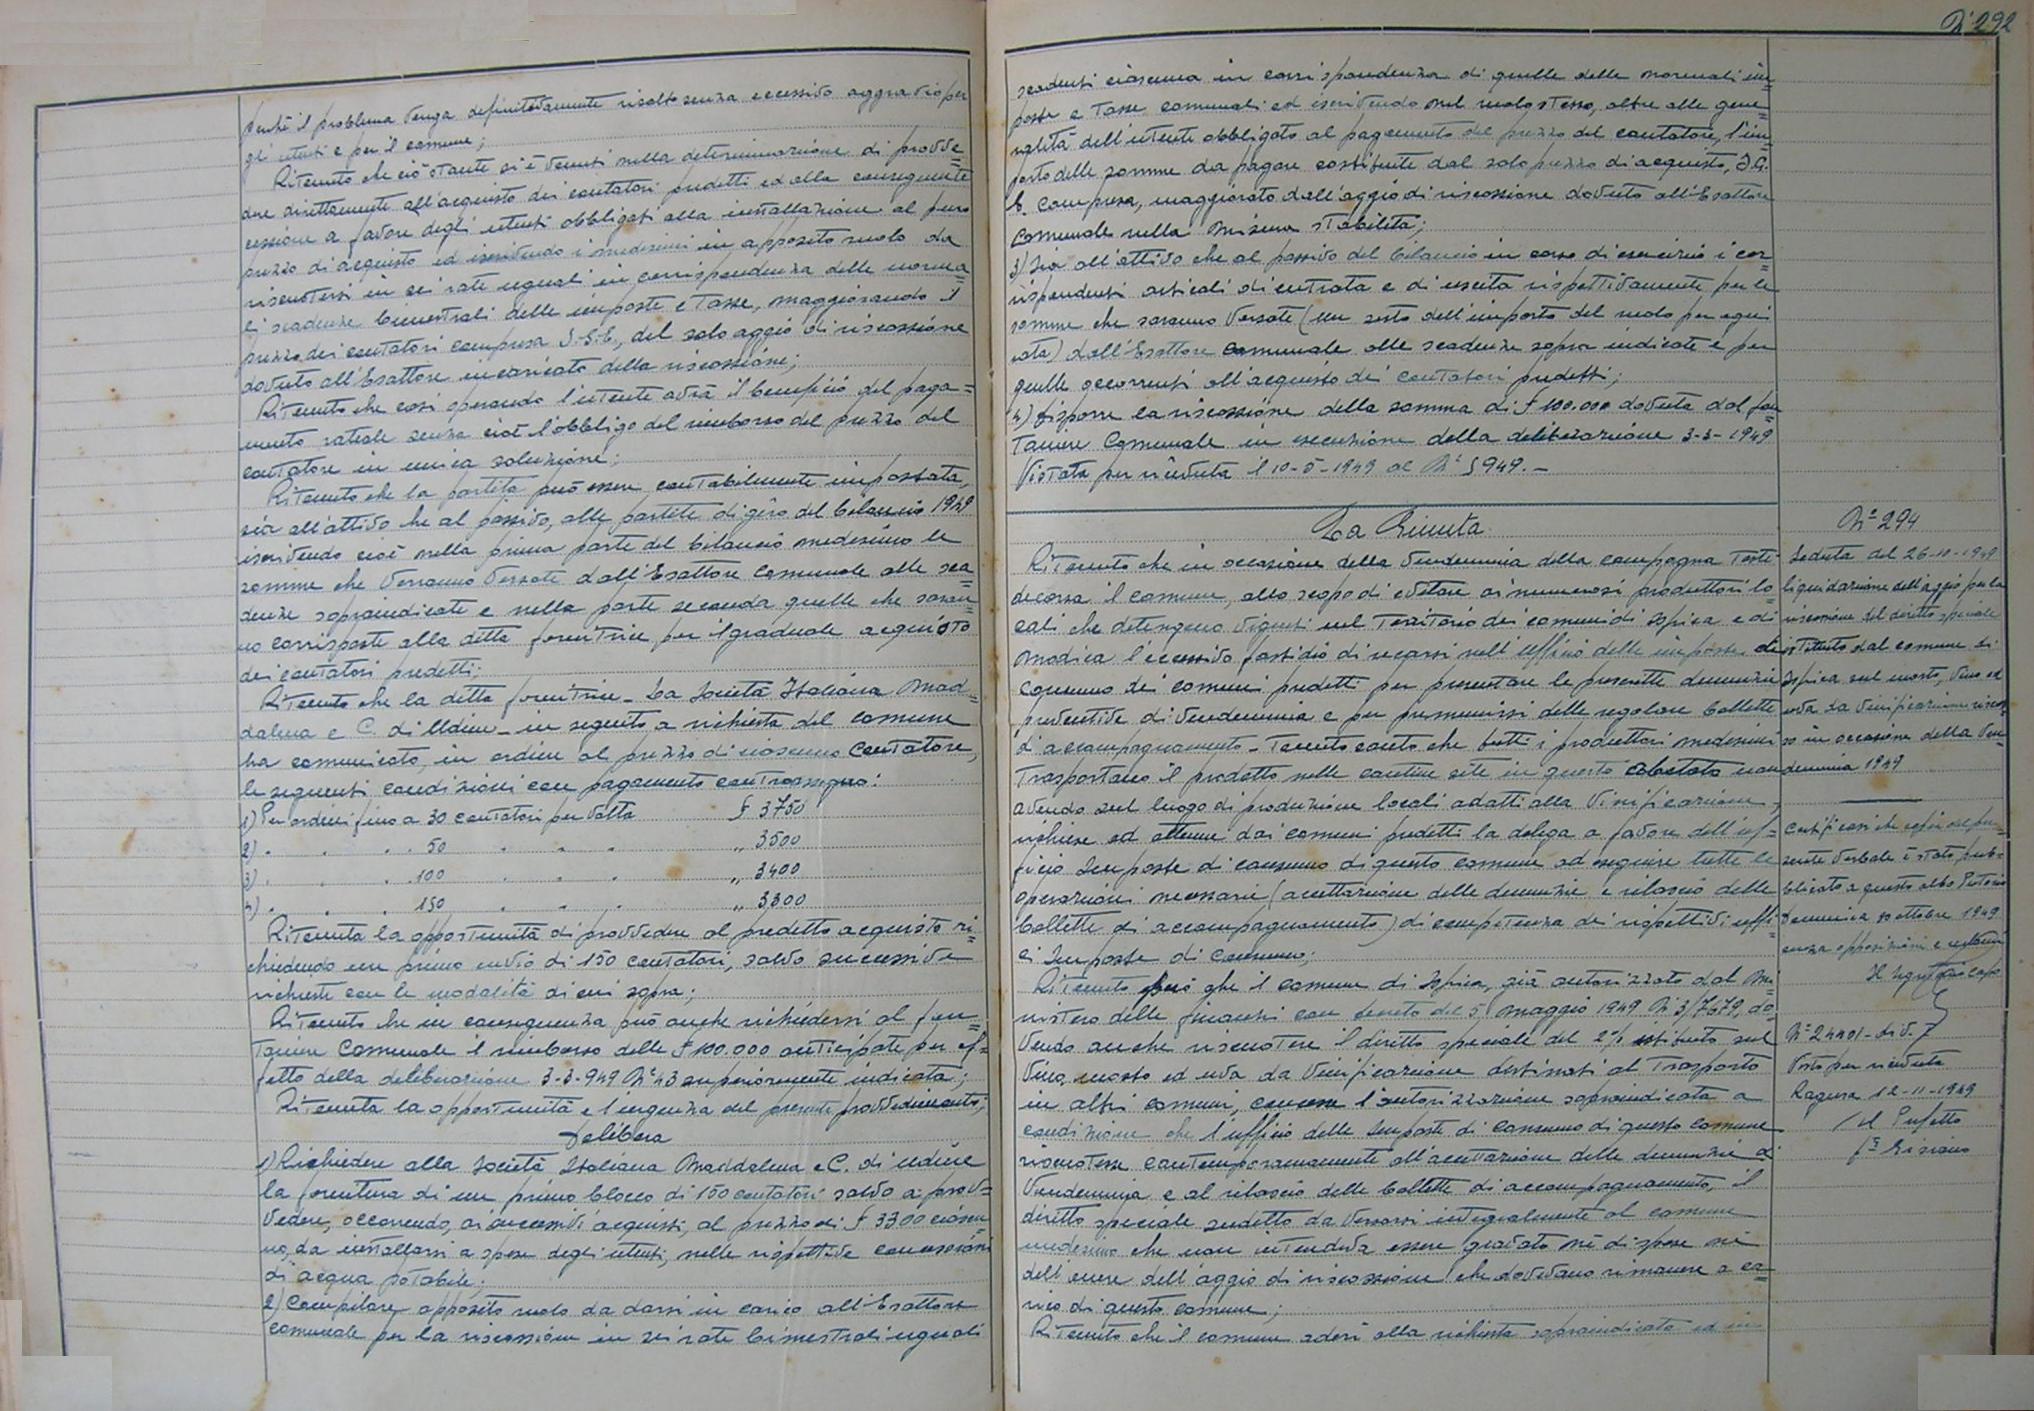 perchè il problema venga definitivamente risolto senza eccessivo aggravio per
gli utenti e per il comune;
Ritenuto che ciò stante si è venuti nella determinazione di provve=
dere direttamente all'acquisto dei contatori predetti ed alla conseguente
cessione a favore degli utenti obbligati alla installazione al puro
prezzo di acquisto ed iscrivendo i medesimi in apposito ruolo da
riscuotersi in sei rate uguali in corrispondenza delle norma=
li scadenze bimestrali delle imposte e tasse, maggiorando il
prezzo dei contatori compresa I.G.E., del solo aggio di riscossione
dovuto all'Esattore incaricato della riscossione;
Ritenuto che così operando l'utente avrà il beneficio del paga=
mento rateale senza cioè l'obbligo del rimborso del prezzo del
contatore in unica soluzione;
Ritenuto che la partita può essere contabilmente impostata,
sia all'attivo che al passivo, alle partite di giro del bilancio 1949
iscrivendo cioè nella prima parte del bilancio medesimo le
somme che verranno versate dall'Esattore Comunale alle sca=
denze sopraindicate e nella parte seconda quelle che saran=
no corrisposte alla ditta fornitrice per il graduale acquisto
dei contatori predetti;
Ritenuto che la ditta fornitrice - La Società Italiana Mad=
dalena e C. di Udine - in seguito a richiesta del comune
ha comunicato, in ordine al prezzo di ciascuno contatore,
le seguenti condizioni con pagamento contrassegno:
1) Per ordini fino a 30 contatori per volta £ 3750
2) " " " " 50 " " " " 3500
3) " " " " 100 " " " " 3400
4) " " " " 150 " " " " 3300
Ritenuta la opportunità di provvedere al predetto acquisto ri=
chiedendo un primo invio di 150 contatori, salvo successive
richieste con le modalità di cui sopra;
Ritenuto che in conseguenza può anche richiedersi al fon=
taniere Comunale il rimborso delle £ 100.000 anticipate per ef=
fetto della deliberazione 3-3-949 N° 43 superiormente indicata;
Ritenuta la opportunità e l'urgenza del presente provvedimento;
Delibera
1) Richiedere alla Società Italiana Maddalena e C. di Udine
la fornitura di un primo blocco di 150 contatori salvo a prov=
vedere, occorrendo, ai successivi acquisti, al prezzo di £ 3300 ciascu
no, da installarsi a spese degli utenti, nelle rispettive concessioni
di acqua potabile;
2) Compilare apposito ruolo da darsi in carico all'Esattore
comunale per la riscossione in sei rate bimestrali uguali
N° 292
scadenti ciascuna in corrispondenza di quelle delle normali im=
poste e tasse comunali ed iscrivendo nel ruolo stesso, oltre alle gene=
ralità dell'utente obbligato al pagamento del prezzo del contatore, l'im=
porto delle somme da pagare costituite dal solo prezzo di acquisto, I.G.
E. compresa, maggiorato dell'aggio di riscossione dovuto all'Esattore
Comunale nella misura stabilita;
3) Sia all'attivo che al passivo del bilancio in corso di esercizio i cor=
rispondenti articoli di entrata e di uscita rispettivamente per le
somme che saranno versate (un sesto dell'importo del ruolo per ogni
rata) dall'Esattore comunale alle scadenze sopra indicate e per
quelle occorrenti all'acquisto dei contatori predetti;
4) Disporre la riscossione della somma di £ 100.000 dovuta dal fon=
taniere Comunale in esecuzione della deliberazione 3-3-1949
Vistata per veduta il 10-5-1949 al N° 5949.-
La Giunta
Ritenuto che in occasione della vendemmia della campagna testè
decorsa il comune, allo scopo di evitare ai numerosi produttori lo=
cali che detengono vigneti nel territorio dei comuni di Ispica e di
Modica l'eccessivo fastidio di recarsi nell'ufficio delle imposte di
consumo dei comuni predetti per presentare le prescritte denunzie
preventive di vendemmia e per premunirsi delle regolari bollette
di accompagnamento - tenuto conto che tutti i produttori medesimi
trasportano il prodotto nelle cantine site in questo abitato non
avendo sul luogo di produzione locali adatti alla vinificazione,
richiese ed ottenne dai comuni predetti la delega a favore dell'uf=
ficio Imposte di consumo di questo comune ad eseguire tutte le
operazioni necessarie (accettazione delle denunzie e rilascio delle
bollette di accompagnamento) di competenza dei rispettivi uffi=
ci Imposte di Consumo;
Ritenuto però che il comune di Ispica, già autorizzato dal Mi=
nistero delle finanze con decreto del 5 maggio 1949 N. 3/7679, do=
vendo anche riscuotere il diritto speciale del 2% istituito sul
vino, mosto ed uva da vinificazione destinati al trasporto
in altri comuni, concesse l'autorizzazione sopraindicata a
condizione che l'ufficio delle Imposte di consumo di questo comune
riscuotesse contemporaneamente all'accettazione delle denunzie di
vendemmia e al rilascio delle bollette di accompagnamento, il
diritto speciale suddetto da versarsi integralmente al comune
medesimo che non intendeva essere gravato nè di spese nè
dell'onere dell'aggio di riscossione che dovevano rimanere a ca=
rico di questo comune;
Ritenuto che il comune aderì alla richiesta sopraindicata ed in
N° 294
Seduta del 26-10-1949
liquidazione dell'aggio per la
riscossione del diritto speciale
istituito dal comune di
Ispica sul mosto, vino ed
uva da vinificazione riscos=
so in occasione della ven=
demmia 1949
Certificasi che copia del pre=
sente verbale è stato pub=
blicato a questo albo Pretorio
Domenica 30 ottobre 1949
senza opposizioni e reclami
Il Segretario capo
N° 24401 - Div. 7
Visto per veduta
Ragusa 12-11-1949
/ Il Prefetto